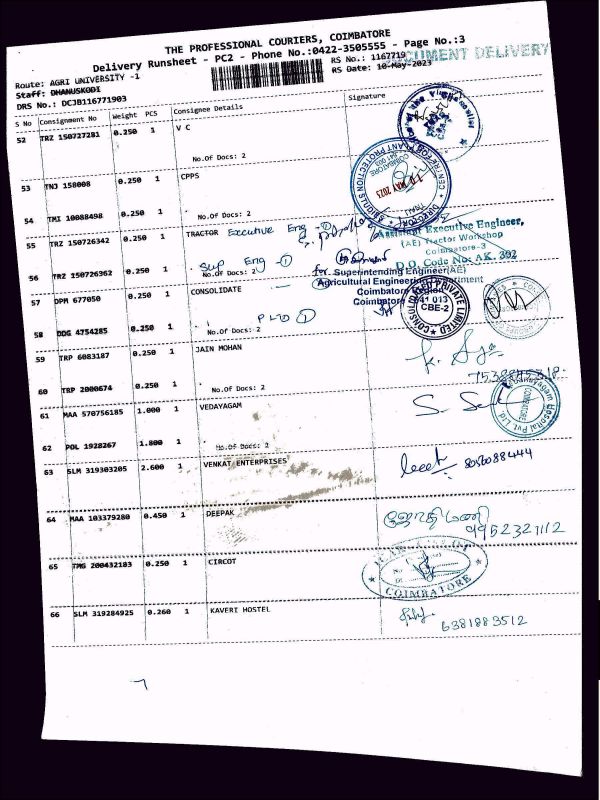 THE PROFESSIONAL COURIERS, COIMBATORE
Delivery Runsheet - PC2 - Phone No.:0422-3505555 - Page No.:3
Route: AGRI UNIVERSITY -1
RS No.: 1167719
DOCUMENT DELIVERY
Staff: DHANUSKODI
RS Date: 10-May-2023
DRS No.: DCJB116771903
S No Consignment No Weight PCS Consignee Details Signature
52 TRZ 150727281 0.250 1 V C
No.Of Docs: 2
53 TNJ 158008 0.250 1 CPPS
54 TMI 10088498 0.250 1
No.Of Docs: 2
55 TRZ 150726342 0.250 1 TRACTOR Executive Eng - 1
Assistant Executive Engineer,
(AE) Tractor Workshop
Coimbatore-3
D.O. Code No: AK. 392
56 TRZ 150726362 0.250 1 Sup Eng - 1
No.Of Docs: 2
for Superintending Engineer(AE)
Agricultural Engineering Department
Coimbatore Region
Coimbatore 641 013
57 DPM 677050 0.250 1 CONSOLIDATE
CONSOLIDATED PRIVATE LIMITED
CBE-2
58 DDG 4754285 0.250 1
No.Of Docs: 2
59 TRP 6083187 0.250 1 JAIN MOHAN
60 TRP 2000674 0.250 1
No.Of Docs: 2
7538845318
61 MAA 570756185 1.000 1 VEDAYAGAM
Vedanayagam Hospital Pvt. Ltd
COIMBATORE
62 POL 1928267 1.800 1
No.Of Docs: 2
63 SLM 319303205 2.600 1 VENKAT ENTERPRISES
8056088444
64 MAA 103379280 0.450 1 DEEPAK
ஜோதிமணி
9952327112
65 TMG 200432183 0.250 1 CIRCOT
COIMBATORE
66 SLM 319284925 0.260 1 KAVERI HOSTEL
6381883512